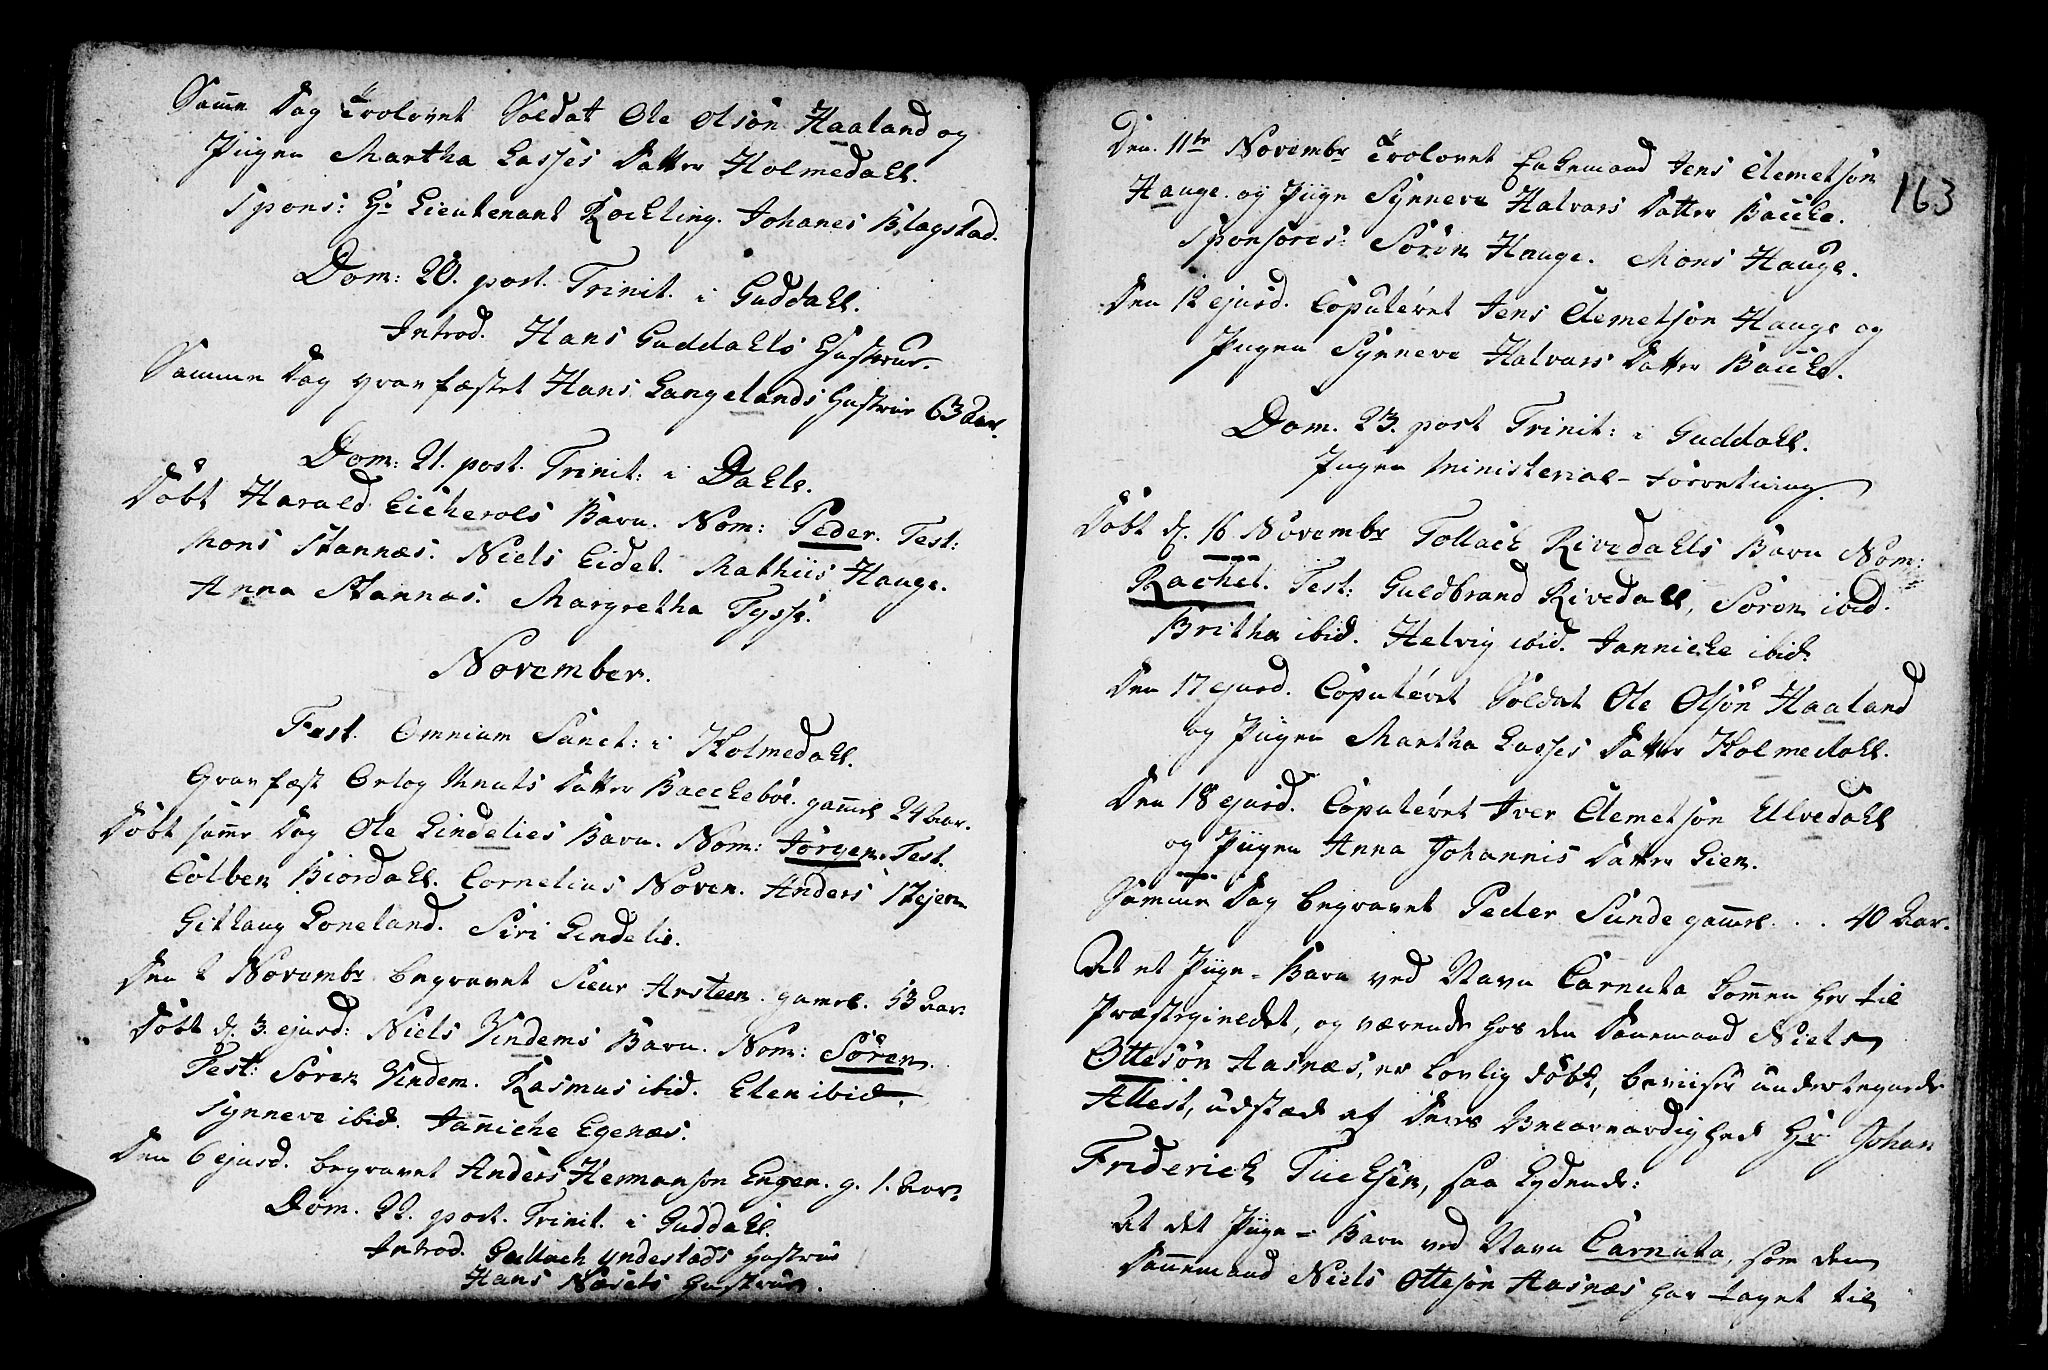 Samme Dag Trolovet Soldat Ole Olsøn Haaland og
Piigen Martha Lasses Datter Holmedahl.
Spons: Hr Lieutenant Kochling. Johanes Blagstad.
Dom: 20. post. Trinit. i Guddahl.
Introd. Hans Guddahls Hustrue.
Samme Dag gravfæstet Hans Langelands Hustrue 63 Aar.
Dom: 21. post. Trinit: i Dahle.
Døbt Harald Eicherols Barn. Nom: Peder. Test:
Mons Stannæs. Niels Eidet. Mathiis Hauge.
Anna Stannæs. Margretha Tysse.
November.
Fest. Omnium Sanct: i Holmedahl.
Gravfæst Knuts Datter Bacchebøe. gammel 24 Aar.
Døbt samme Dag Ole Lindelies Barn. Nom: Jørgen. Test.
Colben Biordahl. Cornelius Noven. Anders
Githaug Loneland. Siri Lindelie.
Den 2 Novembr begravet Siur Arsteen. gamel. 53 Aar.
Døbt d. 3. ejusd: Niels Vindems Barn. Nom: Søren.
Test: Søren Vindem. Rasmus ibid. Elen ibid.
Synneve ibid. Janniche Egenæs.
Den 6 ejusd. begravet Anders Hermansøn Engen. g. 1. Aar.
Dom. 22. post. Trinit. i Guddahl.
Introd. Gullach Yndestads Hustrue
Hans Næsets Hustrue.
163
Den 11te Novembr Trolovet Enkemand Jens Clemetsøn
Hauge. og Piige Synneve Halvars Datter Bacche.
Sponsores: Søren Hauge. Mons Hauge.
Den 12 ejusd. Copuleret Jens Clemetsøn Hauge og
Pigen Synneve Halvars Datter Bacche.
Dom. 23. post Trinit: i Guddahl.
Ingen Ministerial-Forretning.
Døbt d. 16 Novembr Tollach Rivedahls Barn Nom:
Rachel. Test: Guldbrand Rivedahl, Søren ibid.
Britha ibid. Helvig ibid. Janniche ibid.
Den 17 ejusd. Copuleret Soldat Ole Olsøn Haaland
og Piigen Martha Lasses Datter Holmedahl.
Den 18 ejusd. Copuleret Iver Clemetsøn Ulvedahl
og Piigen Anna Johannis Datter Lien.
Samme Dag begravet Peder Sunde gammel . . . 40 Aar.
At et Piige-Barn ved Navn Carnuta kommen her til
Præstegieldet, og værende hos den Dannemand Niels
Ottesøn Aasnæs, er lovlig døbt, beviiser undertegnede
Attest, udstæd af Deres Velærværdighed Hr. Johan
Friderich Tuchsen, saa Lydende:
At det Piige-Barn ved Navn Carnuta, som den
Dannemand Niels Ottesøn Aasnæs har taget til